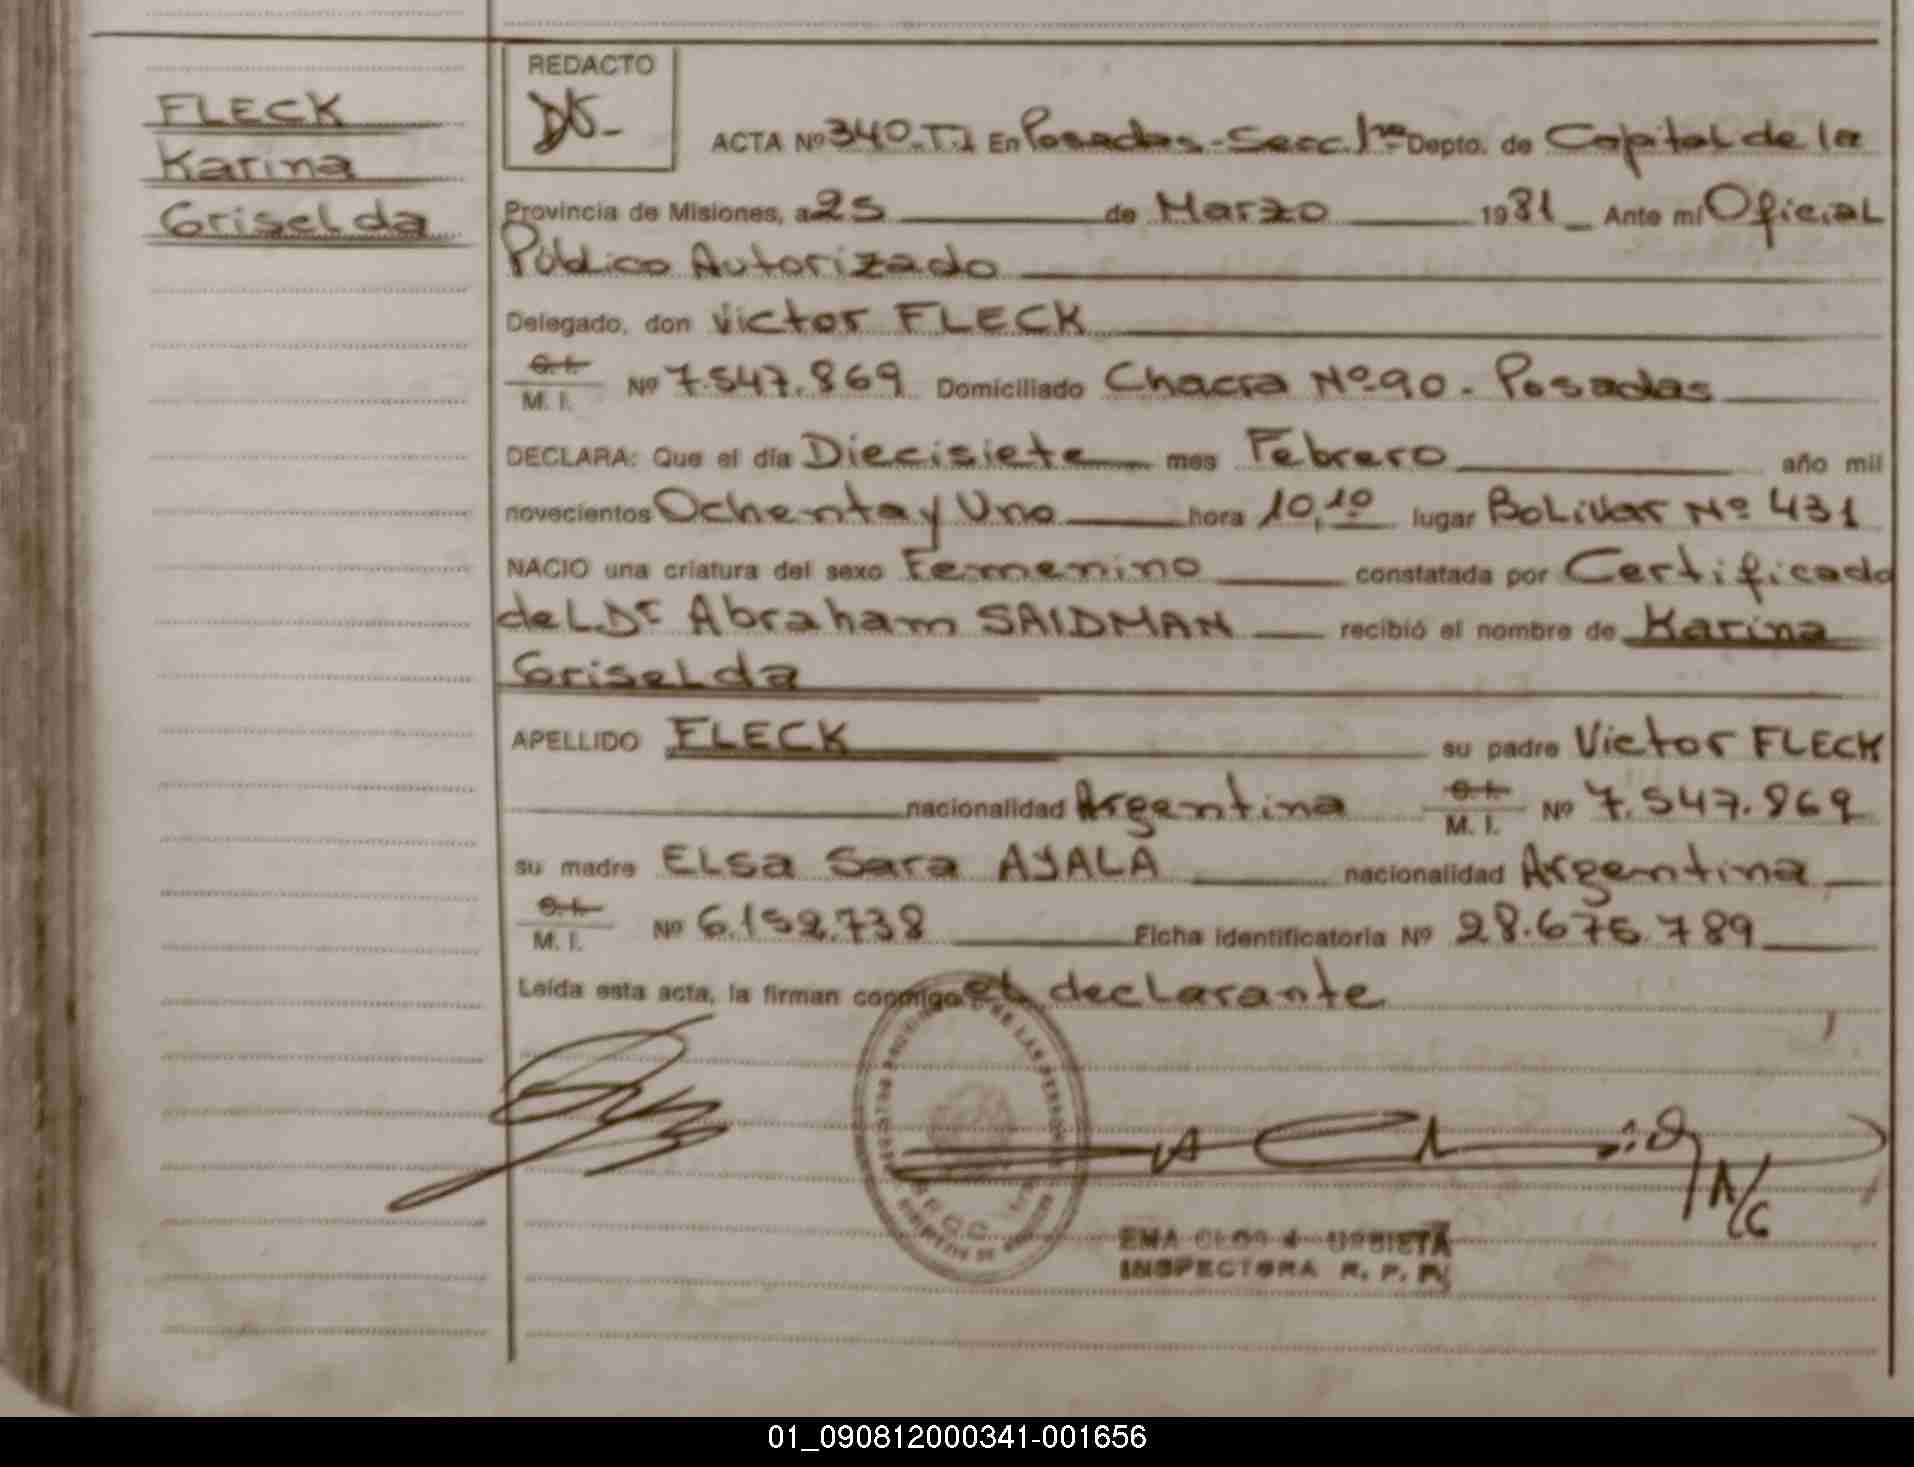 FLECK
Karina
Griselda
REDACTO
ACTA Nº 340-T.1 En Posadas-Secc. 1ra Depto. de Capital de la
Provincia de Misiones, a 25 de Marzo 1981 Ante mí Oficial
Público Autorizado
Delegado, don Victor FLECK
C.I.
M. I. Nº 7.547.869 Domiciliado Chacra Nº 90 - Posadas
DECLARA: Que el día Diecisiete mes Febrero año mil
novecientos Ochenta y Uno hora 10,10 lugar BoLivar Nº 431
NACIO una criatura del sexo Femenino constatada por Certificado
deL Dr Abraham SAIDMAN recibió el nombre de Karina
Griselda
APELLIDO FLECK su padre Victor FLECK
nacionalidad Argentina C.I. M. I. Nº 7.547.869
su madre ELsa Sara AYALA nacionalidad Argentina
C.I.
M. I. Nº 6.152.738 Ficha identificatoria Nº 28.675.789
Leída esta acta, la firman conmigo eL decLarante
INSPECTORA R. P. P.
01_090812000341-001656